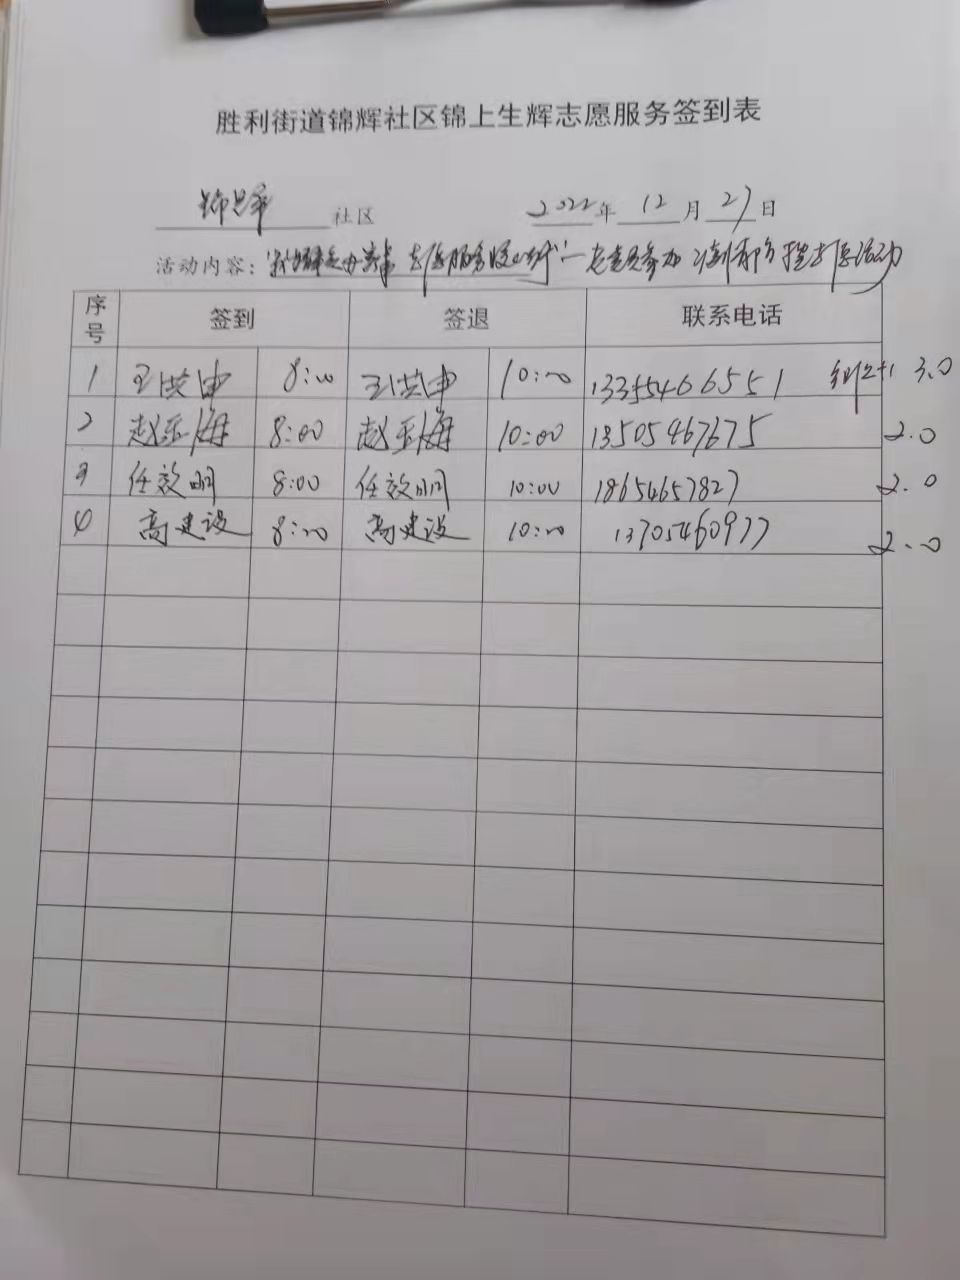 胜利街道锦辉社区锦上生辉志愿服务签到表
社区 2022年12月27日
活动内容：
序号 签到 签退 联系电话
1 王洪申 8:00 王洪申 10:00 13355466551 3.0
2 赵玉海 8:00 赵玉海 10:00 13505467675 2.0
3 任效明 8:00 任效明 10:00 18654657827 2.0
4 高建设 8:00 高建设 10:00 13705460977 2.0